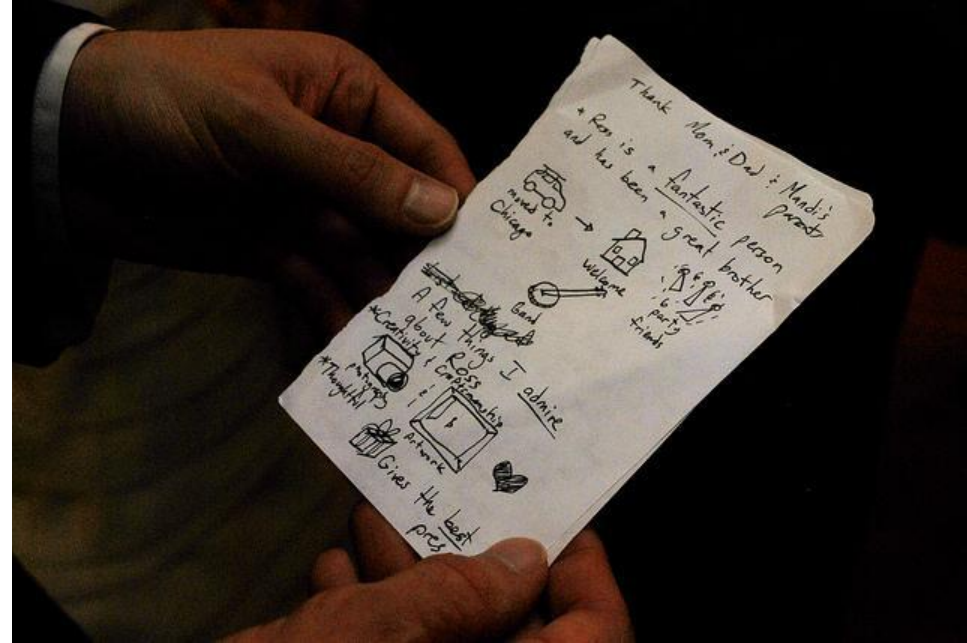 Thank Mom & Dad & Mandi's
parents
* Ross is a fantastic person
and has been a great brother
moved to
Chicago
welcome
Band
party
friends
A few things I admire
about Ross
*Creativity & Craftsmanship
photography
Artwork
*Thoughtful
Gives the best
pres